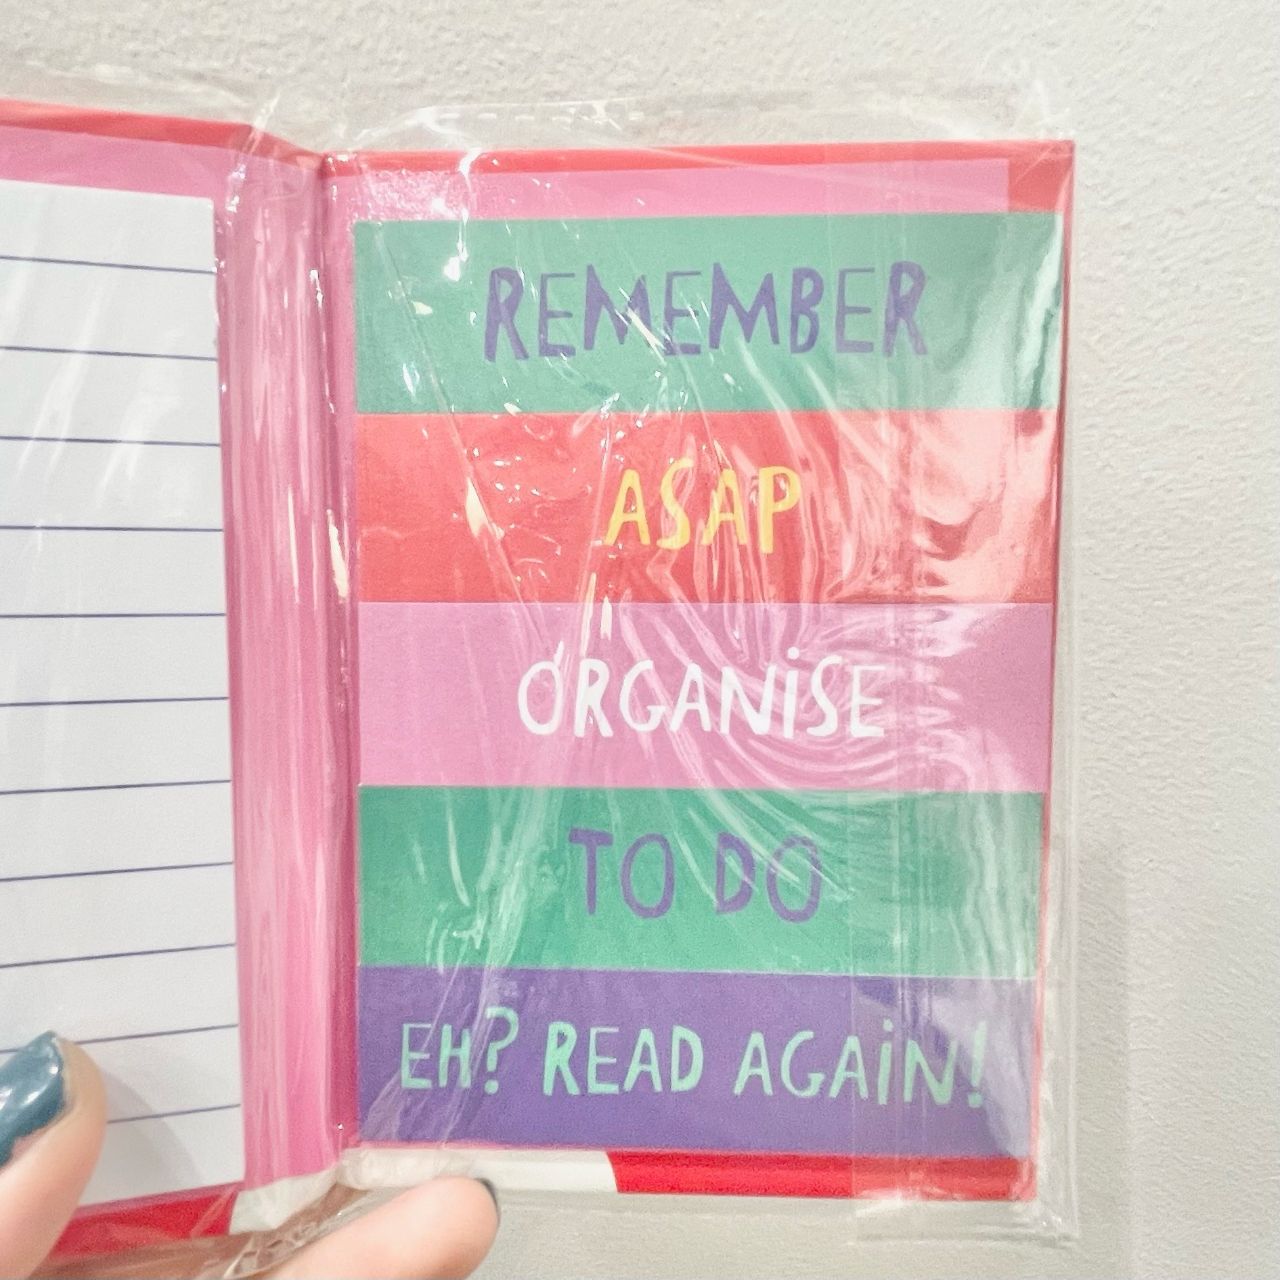 REMEMBER
ASAP
ORGANiSE
TO DO
EH? READ AGAiN!